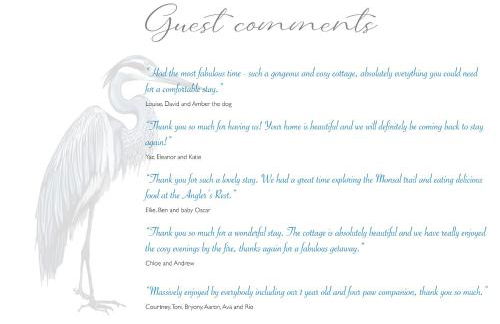 Guest comments
"Had the most fabulous time - such a gorgeous and cosy cottage, absolutely everything you could need
for a comfortable stay."
Louise, David and Amber the dog
"Thank you so much for having us! Your home is beautiful and we will definitely be coming back to stay
again!"
Yaz, Eleanor and Katie
"Thank you for such a lovely stay. We had a great time exploring the Monsal trail and eating delicious
food at the Angler's Rest."
Ellie, Ben and baby Oscar
"Thank you so much for a wonderful stay. The cottage is absolutely beautiful and we have really enjoyed
the cosy evenings by the fire, thanks again for a fabulous getaway."
Chloe and Andrew
"Massively enjoyed by everybody including our 1 year old and four paw companion, thank you so much."
Courtney, Toni, Bryony, Aaron, Ava and Rio